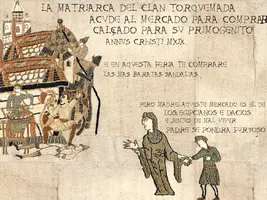 LA MATRIARCA DEL CLAN TORQVEMADA
ACVDE AL MERCADO PARA COMPRAR
CALÇADO PARA SV PRIMOGENITO
ANNVS CRISTI MXIX
E EN AQVESTA FERIA TE COMPRARE
LAS MAS BARATAS SANDALIAS
PERO MADRE, AQVESTE MERCADO ES EL DE
LOS EGIPCIANOS E DACIOS
E GENTES DE MAL VIVER
PADRE SE PONDRA FVRIOSO